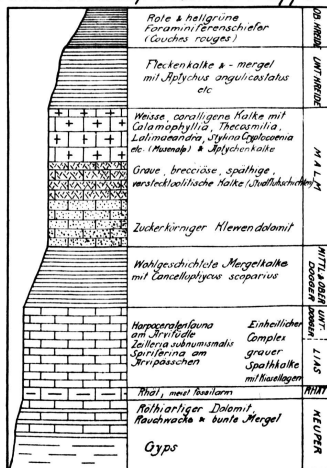 Rote & hellgrüne
Foraminiferenschiefer
(Couches rouges)
OB. KREIDE
Fleckenkalke & - mergel
mit Aptychus angulicostatus
etc
UNT. KREIDE
Weisse, coralligene Kalke mit
Calamophyllia, Thecosmilia,
Latimaeandra, Stylina Cryptocoenia
etc. (Mosenalp) & Aptychenkalke
Graue, brecciöse, späthige,
versteckloolitische Kalke (Stadfluhschichten)
Zuckerkörniger Klewendolomit
MALM
Wohlgeschichtete Mergelkalke
mit Cancellophycus scoparius
MITTL & OBER
DOGGER
Harpoceratenfauna
am Arvifüdle
Zeilleria subnumismalis
Spiriferina am
Arvipässchen
Einheitlicher
Complex
grauer
Spathkalke
mit Kiesellagen
UNT.
DOGGER
LIAS
Rhät, meist fossilarm
RHÄT
Röthiartiger Dolomit,
Rauchwacke & bunte Mergel
Gyps
KEUPER